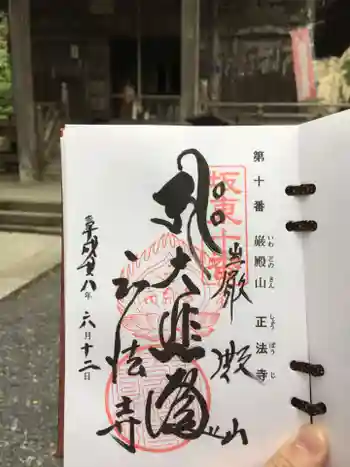 第十番 巌殿山 正法寺
いわ どの さん しょう ぼう じ
坂東十番
巌殿山
大悲殿
正法寺
平成廿八年 六月十二日